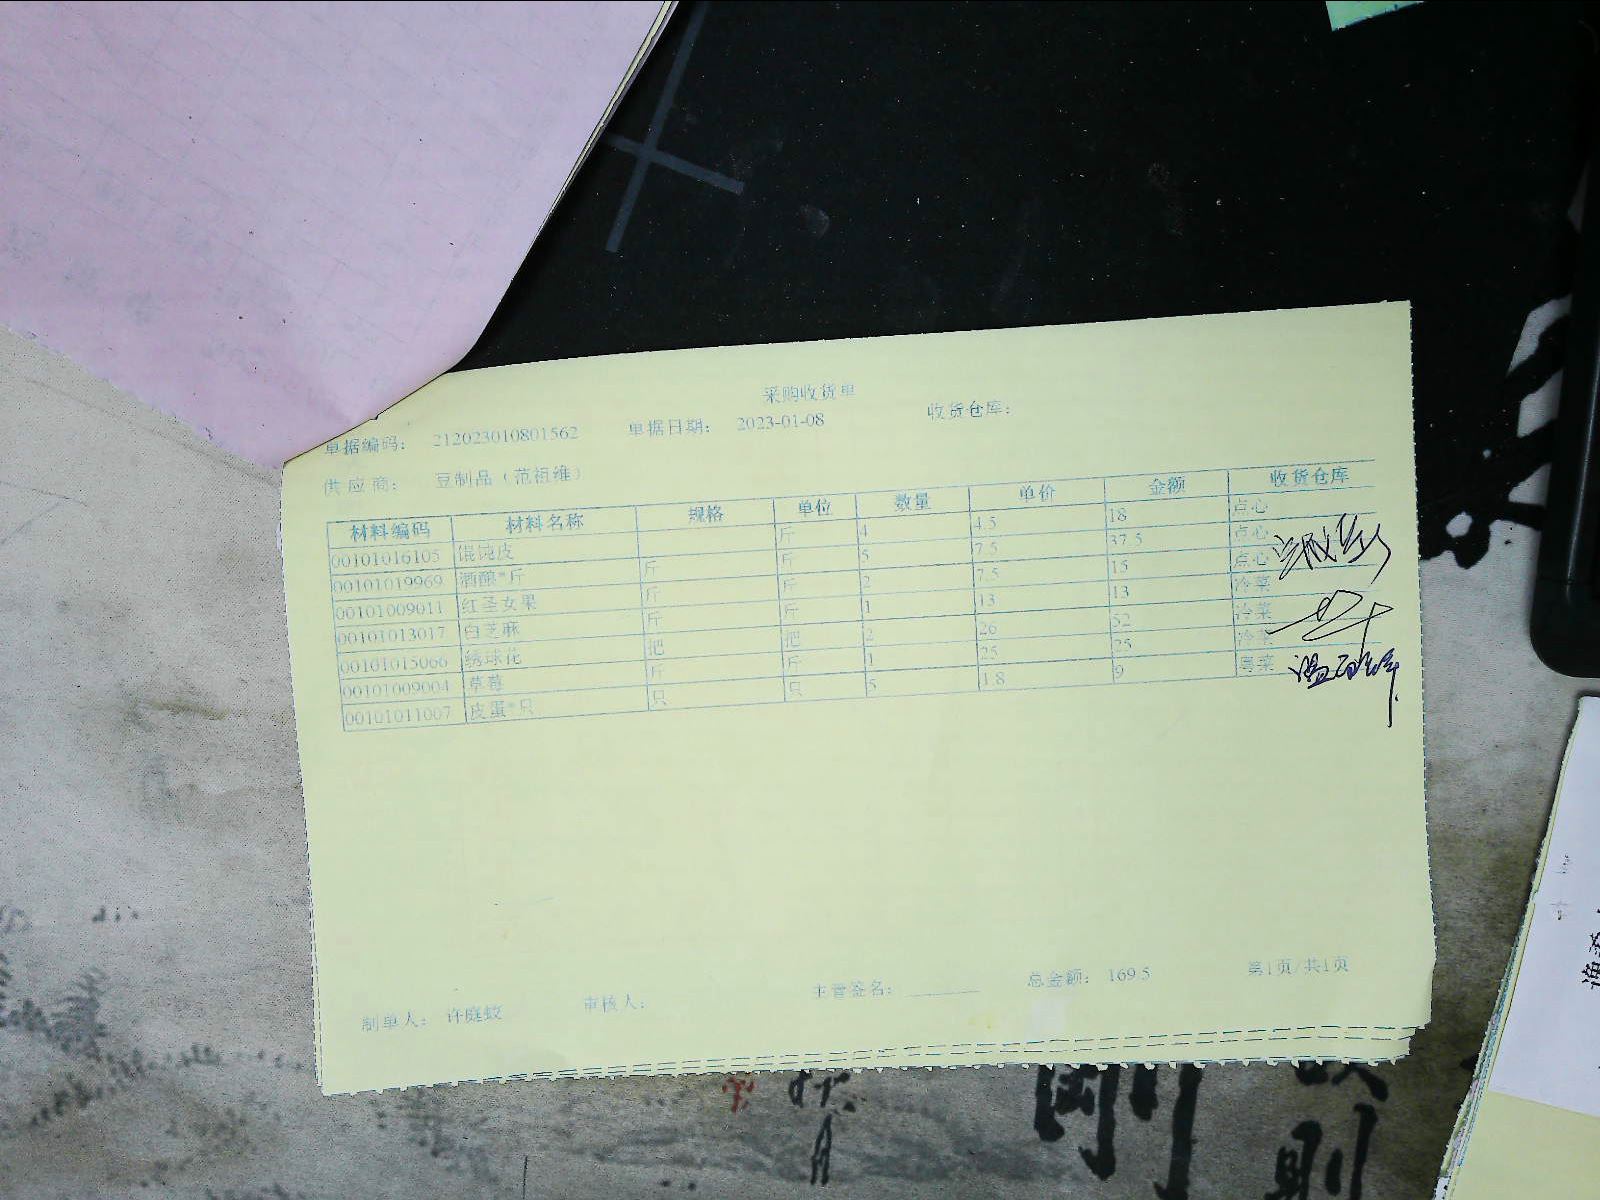 采购收货单
单据编码: 212023010801562 单据日期: 2023-01-08 收货仓库:
供应商: 豆制品(范祖维)
材料编码 材料名称 规格 单位 数量 单价 金额 收货仓库
00101016105 馄饨皮 斤 4 4.5 18 点心
00101019969 酒酿*斤 斤 斤 5 7.5 37.5 点心
00101009011 红圣女果 斤 斤 2 7.5 15 点心
00101013017 白芝麻 斤 斤 1 13 13 冷菜
00101015066 绣球花 把 把 2 26 52 冷菜
00101009004 草莓 斤 斤 1 25 25 冷菜
00101011007 皮蛋*只 只 只 5 1.8 9 粤菜
制单人: 许庭蛟 审核人: 主管签名: 总金额: 169.5 第1页/共1页